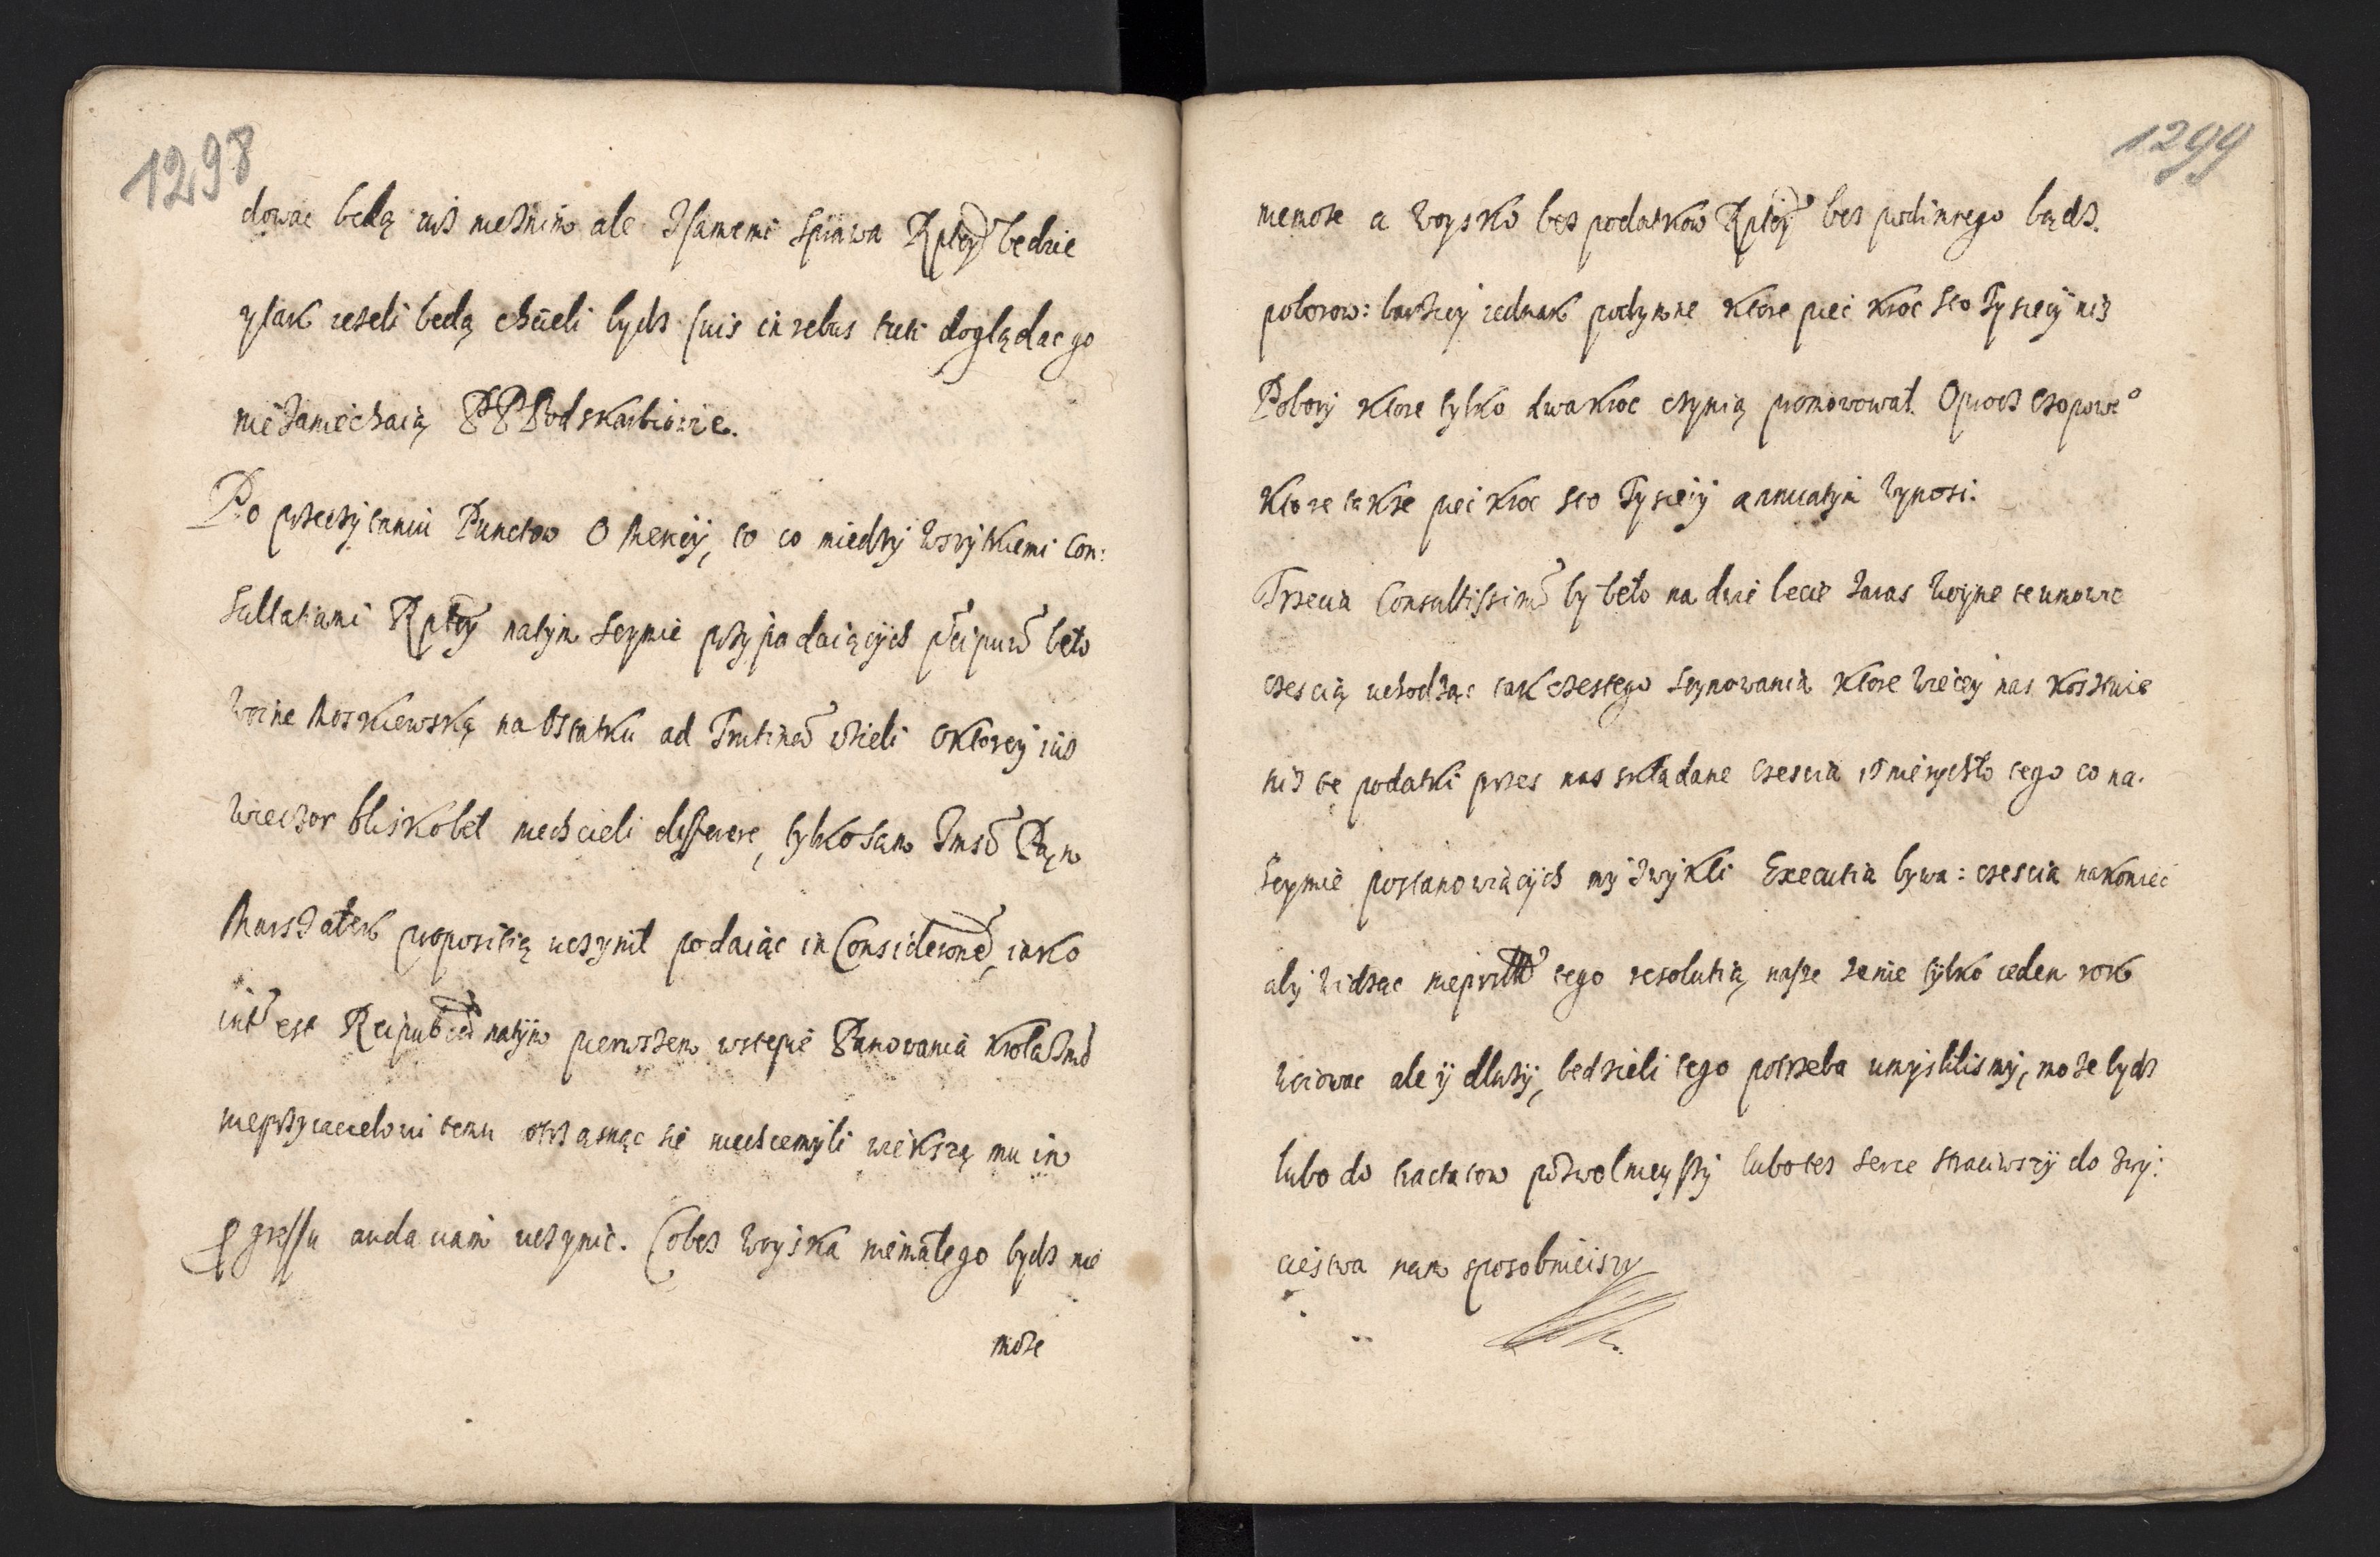 1298
dowac będą iuż nieżnim ale zsamemi spiawa Rptey będzie
ytak ieżeli będą chcieli bydź suis in rebus tuti doglądac go
niezaniechaią PPPodskarbiowie.
Po przeczytaniu Punctow o Mencij, to co miedzy wszytkiemi Con:
sultatiami Rptey natym Seymie przypadaiących pcipuu beło
woine Moskiewską na Ostatku ad Trutina wzieli oktorey iuż
wieczor blisko beł niechcieli disserere, tylko sam Jmsc Pan
Marszałek propositią uczynił podaiąc in Considerone, iako
int est Reipub natym pierwszem wstepie Panowania Krola Jmo
nieprzyiacielowi temu otrząsnąc się niechcemyli wiekszą mu in
pgressu audaciam uczynic. Co bez woyska niemałego bydz nie
może
1299
niemoże a woysko bez podatkow Rptey bez podimnego bądz.
poborow: barziey iednak podymne ktore piec kroc sto Tysiecy niż
Pobory ktore tylko dwakroc czynią promowował. Oprocz Czopowe°
ktore także piec kroc sto Tysiecy annuatim wynosi.
Trzecia Consultissimu by beło na dwie lecie zaraz woyne te umowic
czescią uchodząc tak czestego seymowania ktore wiecey nas kosztuie
niż te podatki przez nas składane czescia iż nierychło tego co na.
Seymie postanowiacych my zwykli Executia bywa: czescia nakoniec
aby widząc nieprzel tego resolutią nasze ze nie tylko ieden rok
woiowac ale y dłuży, bedzieli tego potrzeba umyslilismy, może bydz
lubo do tractatow pozwolnieyszy lubo tez serce straciwszy do zwy:
ciestwa nam sposobnieiszy